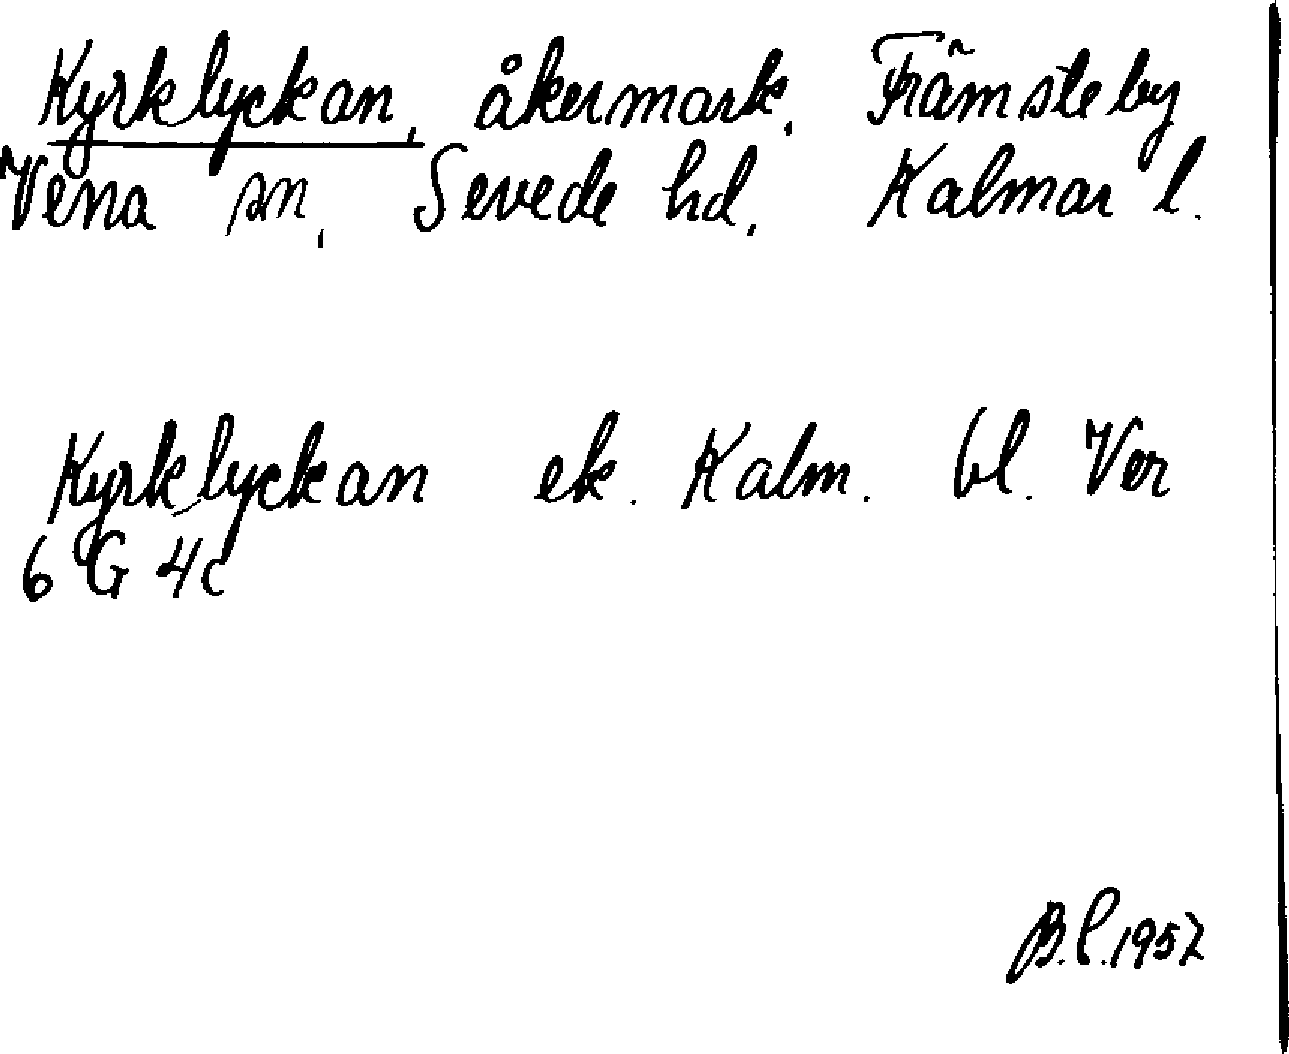 Kyrklyckan, åkermark, Främsteby
Vena sn, Sevede hd, Kalmar l.
Kyrklyckan ek. Kalm. bl. Ver
6 G 4c
B.C. 1957